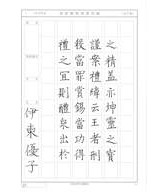 之精盖亦坤靈之寶
謹案禮緯云王者刑
殺當罪賞錫當功得
禮之宜則醴泉出於
伊東優子